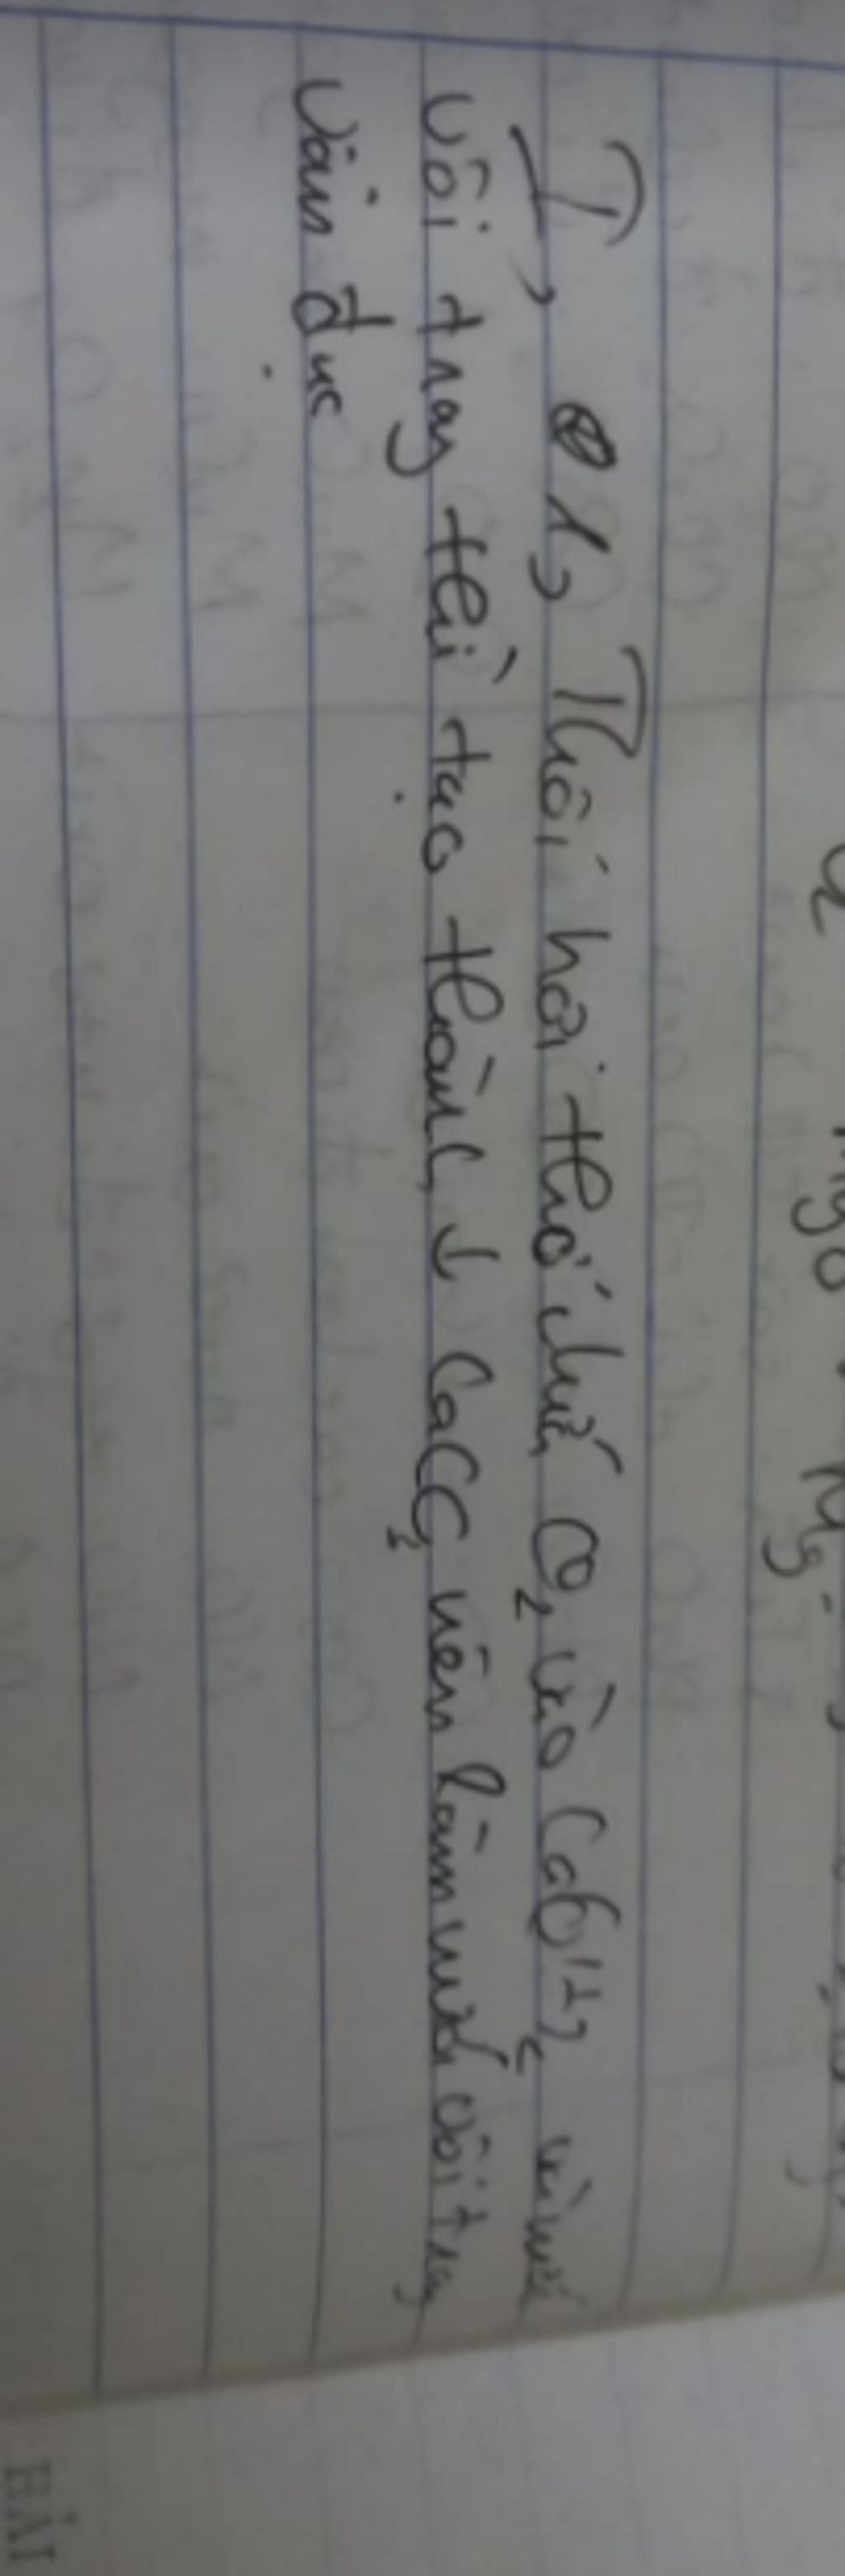 I, 1, Thổi hơi thở chứa CO2 vào Ca(OH)2 vì nước
vôi trong thì tạo thành ↓ CaCO3 nên làm nước vôi trong
vẩn đục
HẢI